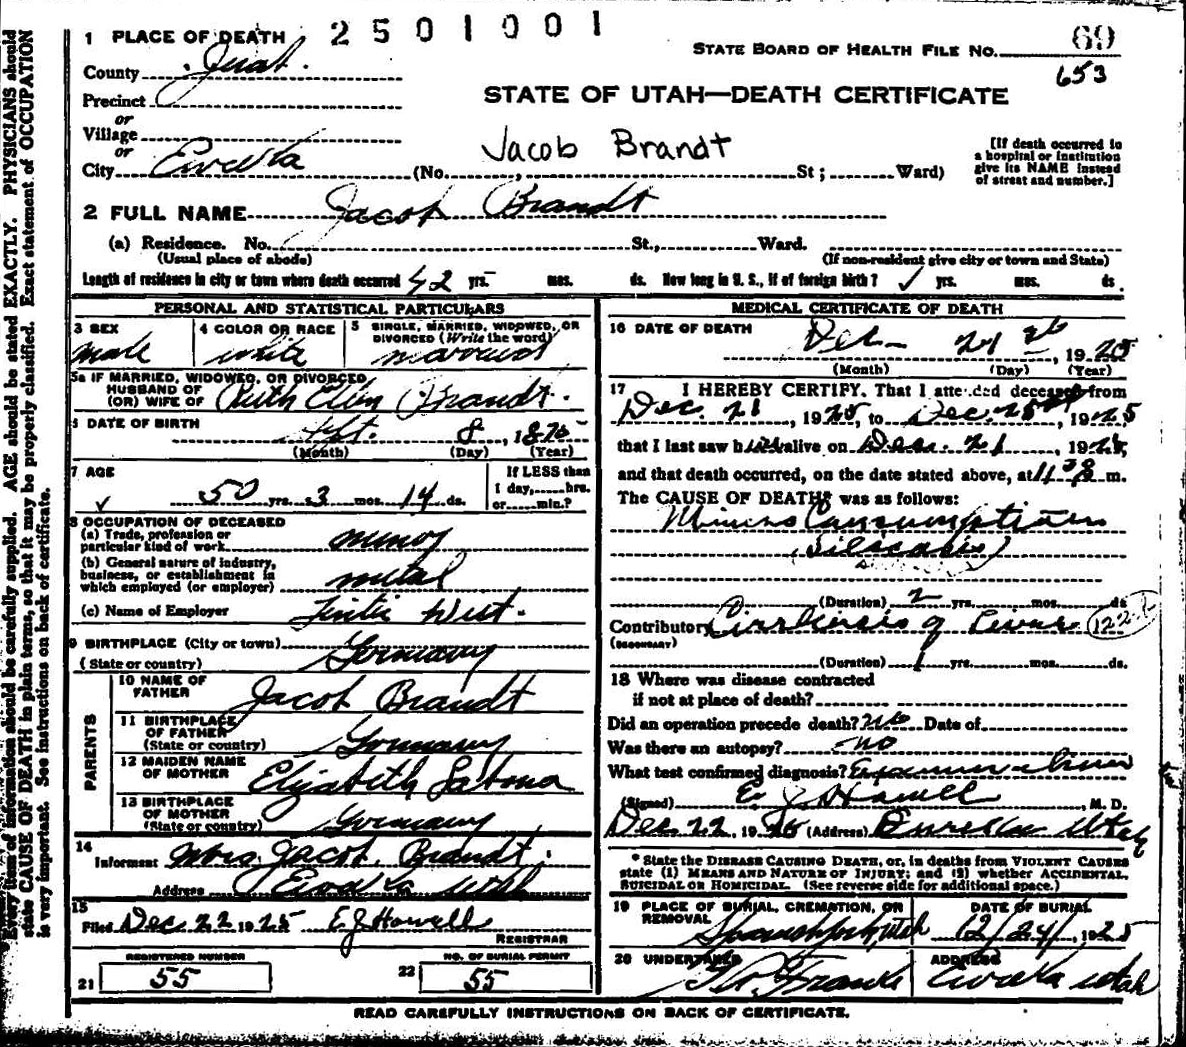 2501001
1 PLACE OF DEATH
STATE BOARD OF HEALTH FILE NO. 69
653
County Juab.
Precinct
or
Village
or
City Eureka
STATE OF UTAH—DEATH CERTIFICATE
Jacob Brandt
(No. , St; Ward)
[If death occurred in a hospital or institution give its NAME instead of street and number.]
2 FULL NAME Jacob Brandt
(a) Residence. No. St., Ward.
(Usual place of abode) (If non-resident give city or town and State)
Length of residence in city or town where death occurred 42 yrs. mos. ds. How long in U. S., if of foreign birth? ✓ yrs. mos. ds.
PERSONAL AND STATISTICAL PARTICULARS
3 SEX
male
4 COLOR OR RACE
white
5 SINGLE, MARRIED, WIDOWED, OR DIVORCED (Write the word)
married
5a IF MARRIED, WIDOWED, OR DIVORCED
HUSBAND OF
(OR) WIFE OF Ruth Ellen Brandt.
6 DATE OF BIRTH Sept. 8, 1875
(Month) (Day) (Year)
7 AGE
✓ 50 yrs. 3 mos. 14 ds.
If LESS than
1 day, hrs.
or min.?
8 OCCUPATION OF DECEASED
(a) Trade, profession or
particular kind of work miner
(b) General nature of industry,
business, or establishment in
which employed (or employer) metal
(c) Name of Employer Tintic West.
9 BIRTHPLACE (City or town)
(State or country) Germany
PARENTS
10 NAME OF
FATHER Jacob Brandt
11 BIRTHPLACE
OF FATHER
(State or country) Germany
12 MAIDEN NAME
OF MOTHER Elizabeth
13 BIRTHPLACE
OF MOTHER
(State or country) Germany
14
Informant Mrs. Jacob Brandt.
Address Eureka Utah
15
Filed Dec 22 1925 E J Howell
REGISTRAR
REGISTERED NUMBER
21 55
NO. OF BURIAL PERMIT
22 55
MEDICAL CERTIFICATE OF DEATH
16 DATE OF DEATH Dec 21 st, 1925
(Month) (Day) (Year)
17 I HEREBY CERTIFY, That I attended deceased from
Dec. 21, 1925, to Dec. , 1925
that I last saw him alive on Dec. 21, 1925,
and that death occurred, on the date stated above, at 11 30 m.
The CAUSE OF DEATH* was as follows:
Miners Consumption
(Silicosis)
(Duration) 2 yrs. mos. ds
Contributory Cirrhosis of Liver 122
(SECONDARY)
(Duration) 1 yrs. mos. ds.
18 Where was disease contracted
if not at place of death?
Did an operation precede death? no Date of
Was there an autopsy? no
What test confirmed diagnosis?
(Signed) E J Howell, M. D.
Dec 22, 1925 (Address) Eureka Utah
* State the DISEASE CAUSING DEATH, or, in deaths from VIOLENT CAUSES
state (1) MEANS AND NATURE OF INJURY; and (2) whether ACCIDENTAL,
SUICIDAL OR HOMICIDAL. (See reverse side for additional space.)
19 PLACE OF BURIAL, CREMATION, OR
REMOVAL
Spanish Fork, Utah
DATE OF BURIAL
12/24/, 1925
20 UNDERTAKER
Franks
ADDRESS
Eureka Utah
READ CAREFULLY INSTRUCTIONS ON BACK OF CERTIFICATE.
Every item of information should be carefully supplied. AGE should be stated EXACTLY. PHYSICIANS should
state CAUSE OF DEATH in plain terms, so that it may be properly classified. Exact statement of OCCUPATION
is very important. See instructions on back of certificate.